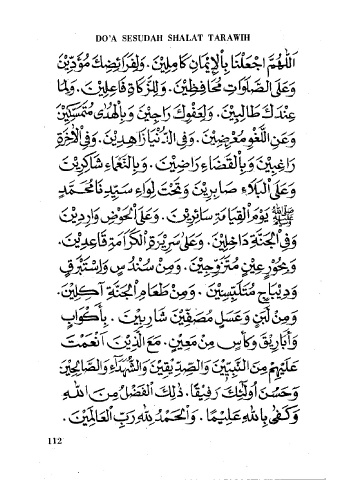 DO'A SESUDAH SHALAT TARAWIH
اَللّٰهُمَّ اجْعَلْنَا بِالْاِيْمَانِ كَامِلِيْنَ. وَلِفَرَائِضِكَ مُؤَدِّيْنَ
وَعَلَى الصَّلَوَاتِ مُحَافِظِيْنَ. وَلِلزَّكَاةِ فَاعِلِيْنَ. وَلِمَا
عِنْدَكَ طَالِبِيْنَ. وَلِعَفْوِكَ رَاجِيْنَ وَبِالْهُدٰى مُتَمَسِّكِيْنَ
وَعَنِ اللَّغْوِ مُعْرِضِيْنَ. وَفِى الدُّنْيَا زَاهِدِيْنَ. وَفِى الْاٰخِرَةِ
رَاغِبِيْنَ وَبِالْقَضَاءِ رَاضِيْنَ. وَبِالنَّعْمَاءِ شَاكِرِيْنَ
وَعَلَى الْبَلَاءِ صَابِرِيْنَ وَتَحْتَ لِوَاءِ سَيِّدِنَا مُحَمَّدٍ
ﷺ يَوْمَ الْقِيَامَةِ سَائِرِيْنَ. وَعَلَى الْحَوْضِ وَارِدِيْنَ
وَفِى الْجَنَّةِ دَاخِلِيْنَ. وَعَلٰى سَرِيْرَةِ الْكَرَامَةِ قَاعِدِيْنَ.
وَبِحُوْرٍعِيْنٍ مُتَزَوِّجِيْنَ. وَمِنْ سُنْدُسٍ وَاِسْتَبْرَقٍ
وَدِيْبَاجٍ مُتَلَبِّسِيْنَ. وَمِنْ طَعَامِ الْجَنَّةِ اٰكِلِيْنَ.
وَمِنْ لَبَنٍ وَعَسَلٍ مُصَفَّيْنِ شَارِبِيْنَ. بِاَكْوَابٍ
وَاَبَارِيْقَ وَكَأْسٍ مِنْ مَعِيْنٍ. مَعَ الَّذِيْنَ اَنْعَمْتَ
عَلَيْهِمْ مِنَ النَّبِيِّيْنَ وَالصِّدِّيْقِيْنَ وَالشُّهَدَاءِ وَالصَّالِحِيْنَ
وَحَسُنَ اُولٰئِكَ رَفِيْقًا. ذٰلِكَ الْفَضْلُ مِنَ اللّٰهِ
وَكَفٰى بِاللّٰهِ عَلِيْمًا. وَالْحَمْدُ لِلّٰهِ رَبِّ الْعَالَمِيْنَ.
112